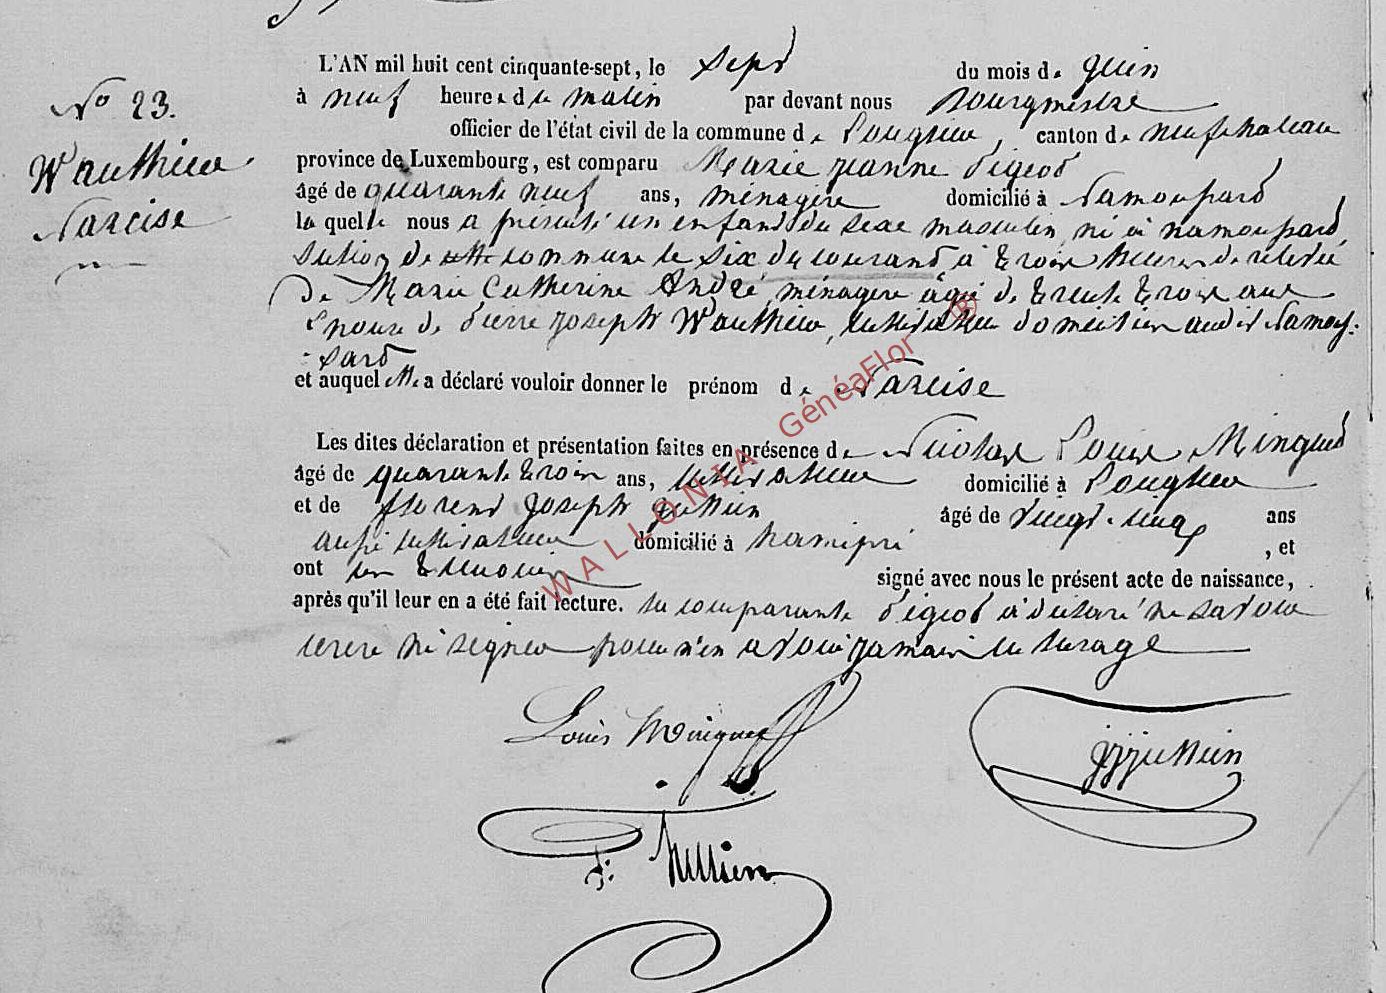 L'AN mil huit cent cinquante-sept, le sept du mois de juin
N° 23.
à neuf heures du matin par devant nous Bourgmestre
officier de l'état civil de la commune de Longlier, canton de neufchateau
Wauthier
province de Luxembourg, est comparu Marie jeanne Pigeot
âgé de quarante neuf ans, ménagère domicilié à Namoussart
Narcise
la quelle nous a présenté un enfant du sexe masculin, né à namoussart,
section de cette commune le six du courant à trois heures de relevée
de Marie Catherine André, ménagère âgée de trente trois ans
Epouse de Pierre joseph Wauthier, cultivateur domicilier audit Namous-
-sart
et auquel elle a déclaré vouloir donner le prénom de Narcise
Les dites déclaration et présentation faites en présence de Nicolas Louis Minguet
âgé de quarante trois ans, cultivateur domicilié à Longlier
et de florent joseph jullien âgé de vingt-cinq ans
aussi cultivateur domicilié à hamipré , et
ont les témoins signé avec nous le présent acte de naissance,
après qu'il leur en a été fait lecture. la comparante Pigeot à déclaré ne savoir
écrire ni signer pour n'en avoir jamais eu lusage
Louis Minguet
jjjullien
f: Jullien
WALLONIA GénéaFlor ®